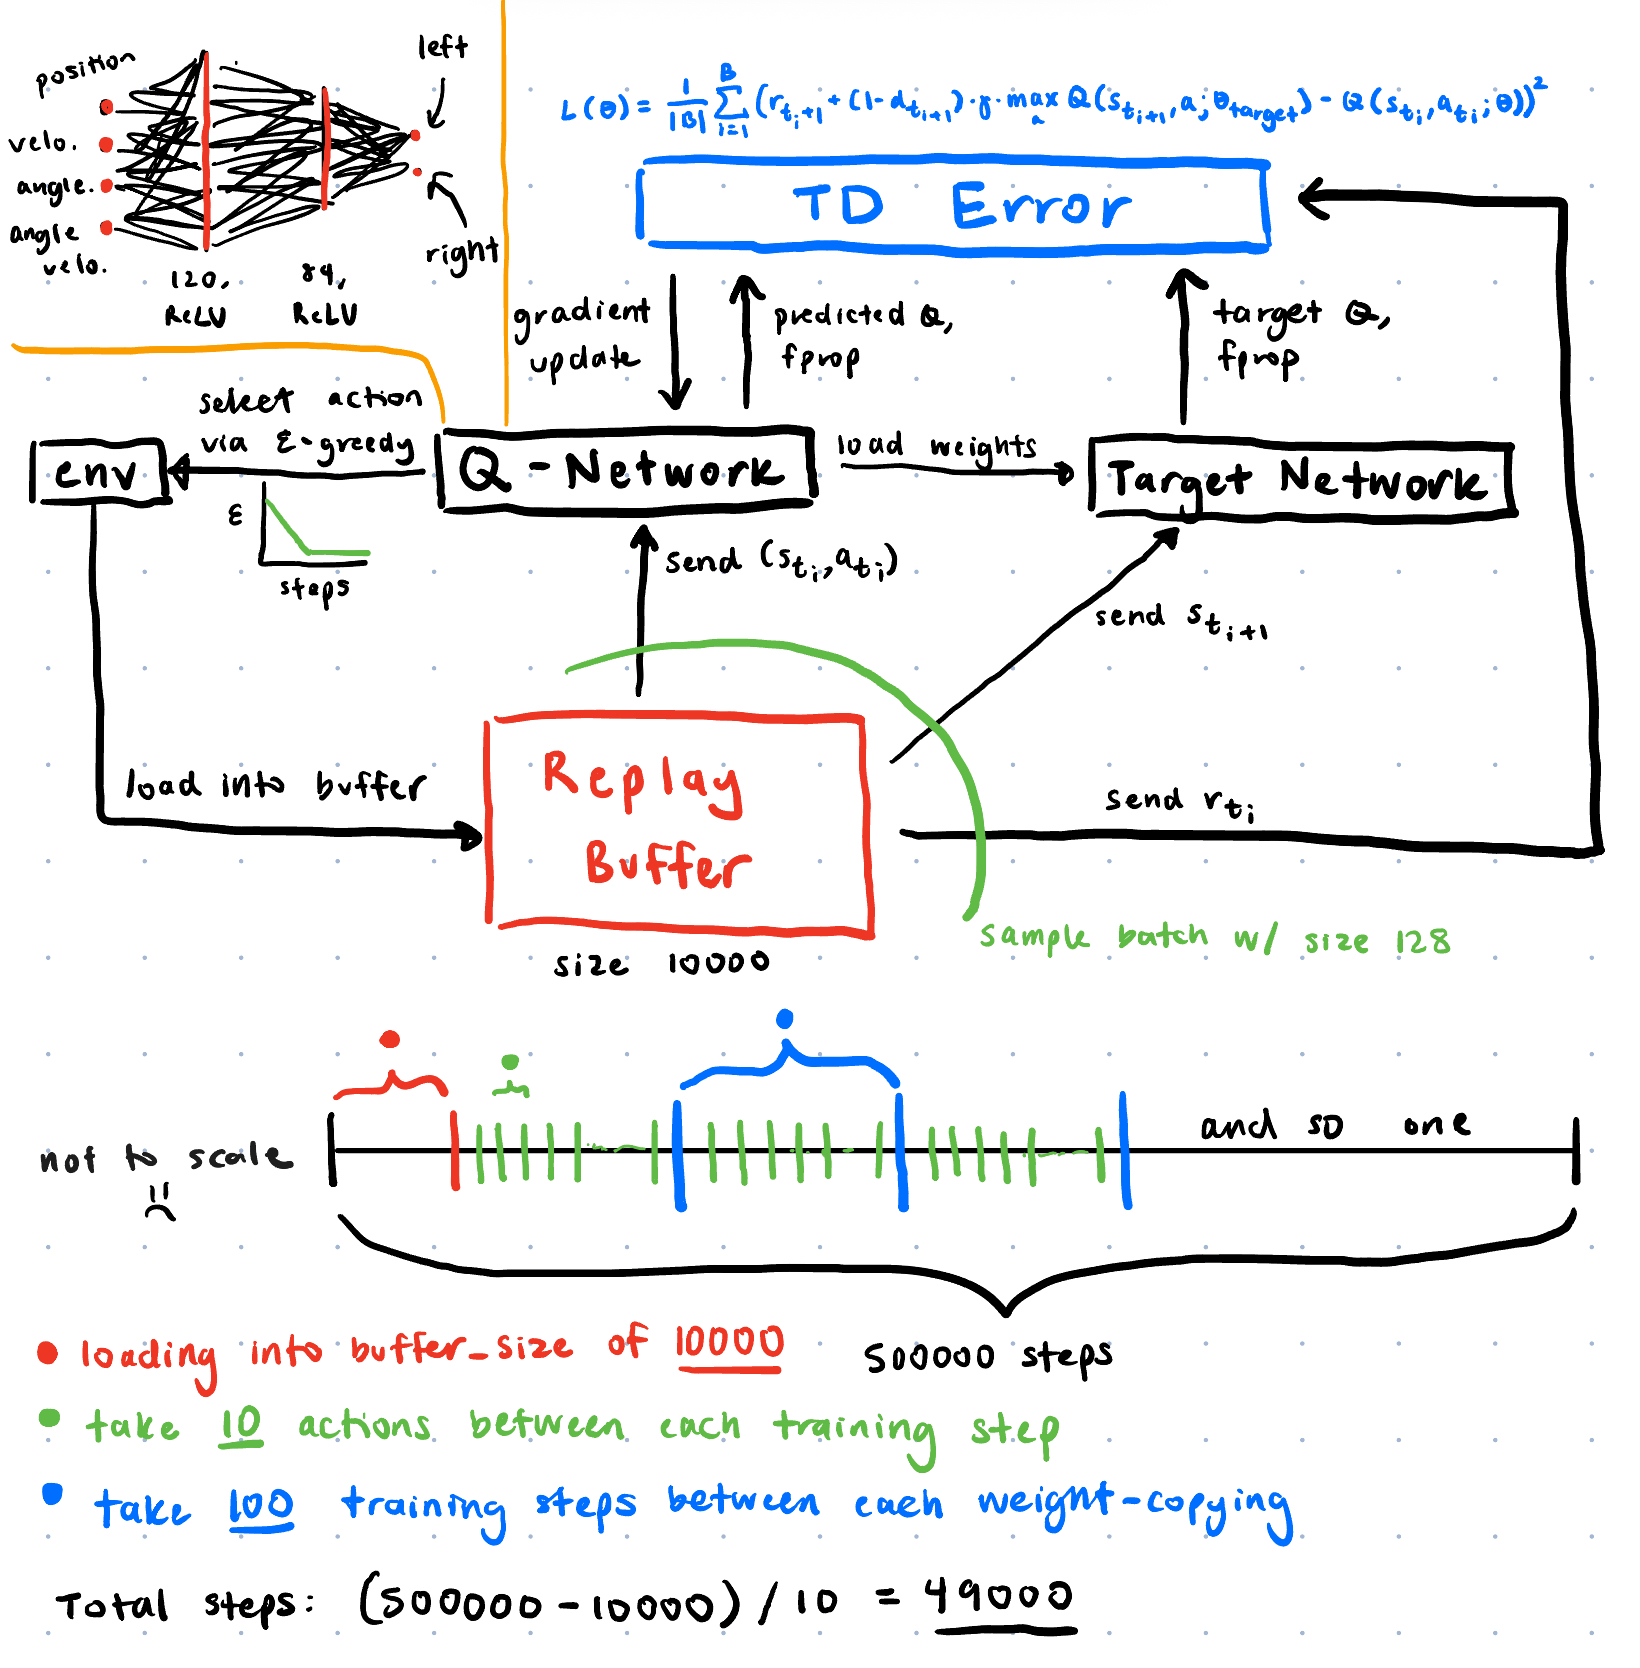 position
velo.
angle.
angle
velo.
120,
ReLU
84,
ReLU
left
right
L(θ) = 1/|B| Σ_{i=1}^{B} (r_{t_i+1} + (1-d_{t_i+1})·γ·max_a Q(s_{t_i+1}, a; θ_target) - Q(s_{t_i}, a_{t_i}; θ))²
TD Error
gradient
update
predicted Q,
fprop
target Q,
fprop
select action
via ε-greedy
env
Q-Network
load weights
Target Network
ε
steps
send (s_{t_i}, a_{t_i})
send s_{t_i+1}
load into buffer
Replay
Buffer
size 10000
send r_{t_i}
sample batch w/ size 128
not to scale
and so one
500000 steps
• loading into buffer_size of 10000
• take 10 actions between each training step
• take 100 training steps between each weight-copying
Total steps: (500000 - 10000) / 10 = 49000